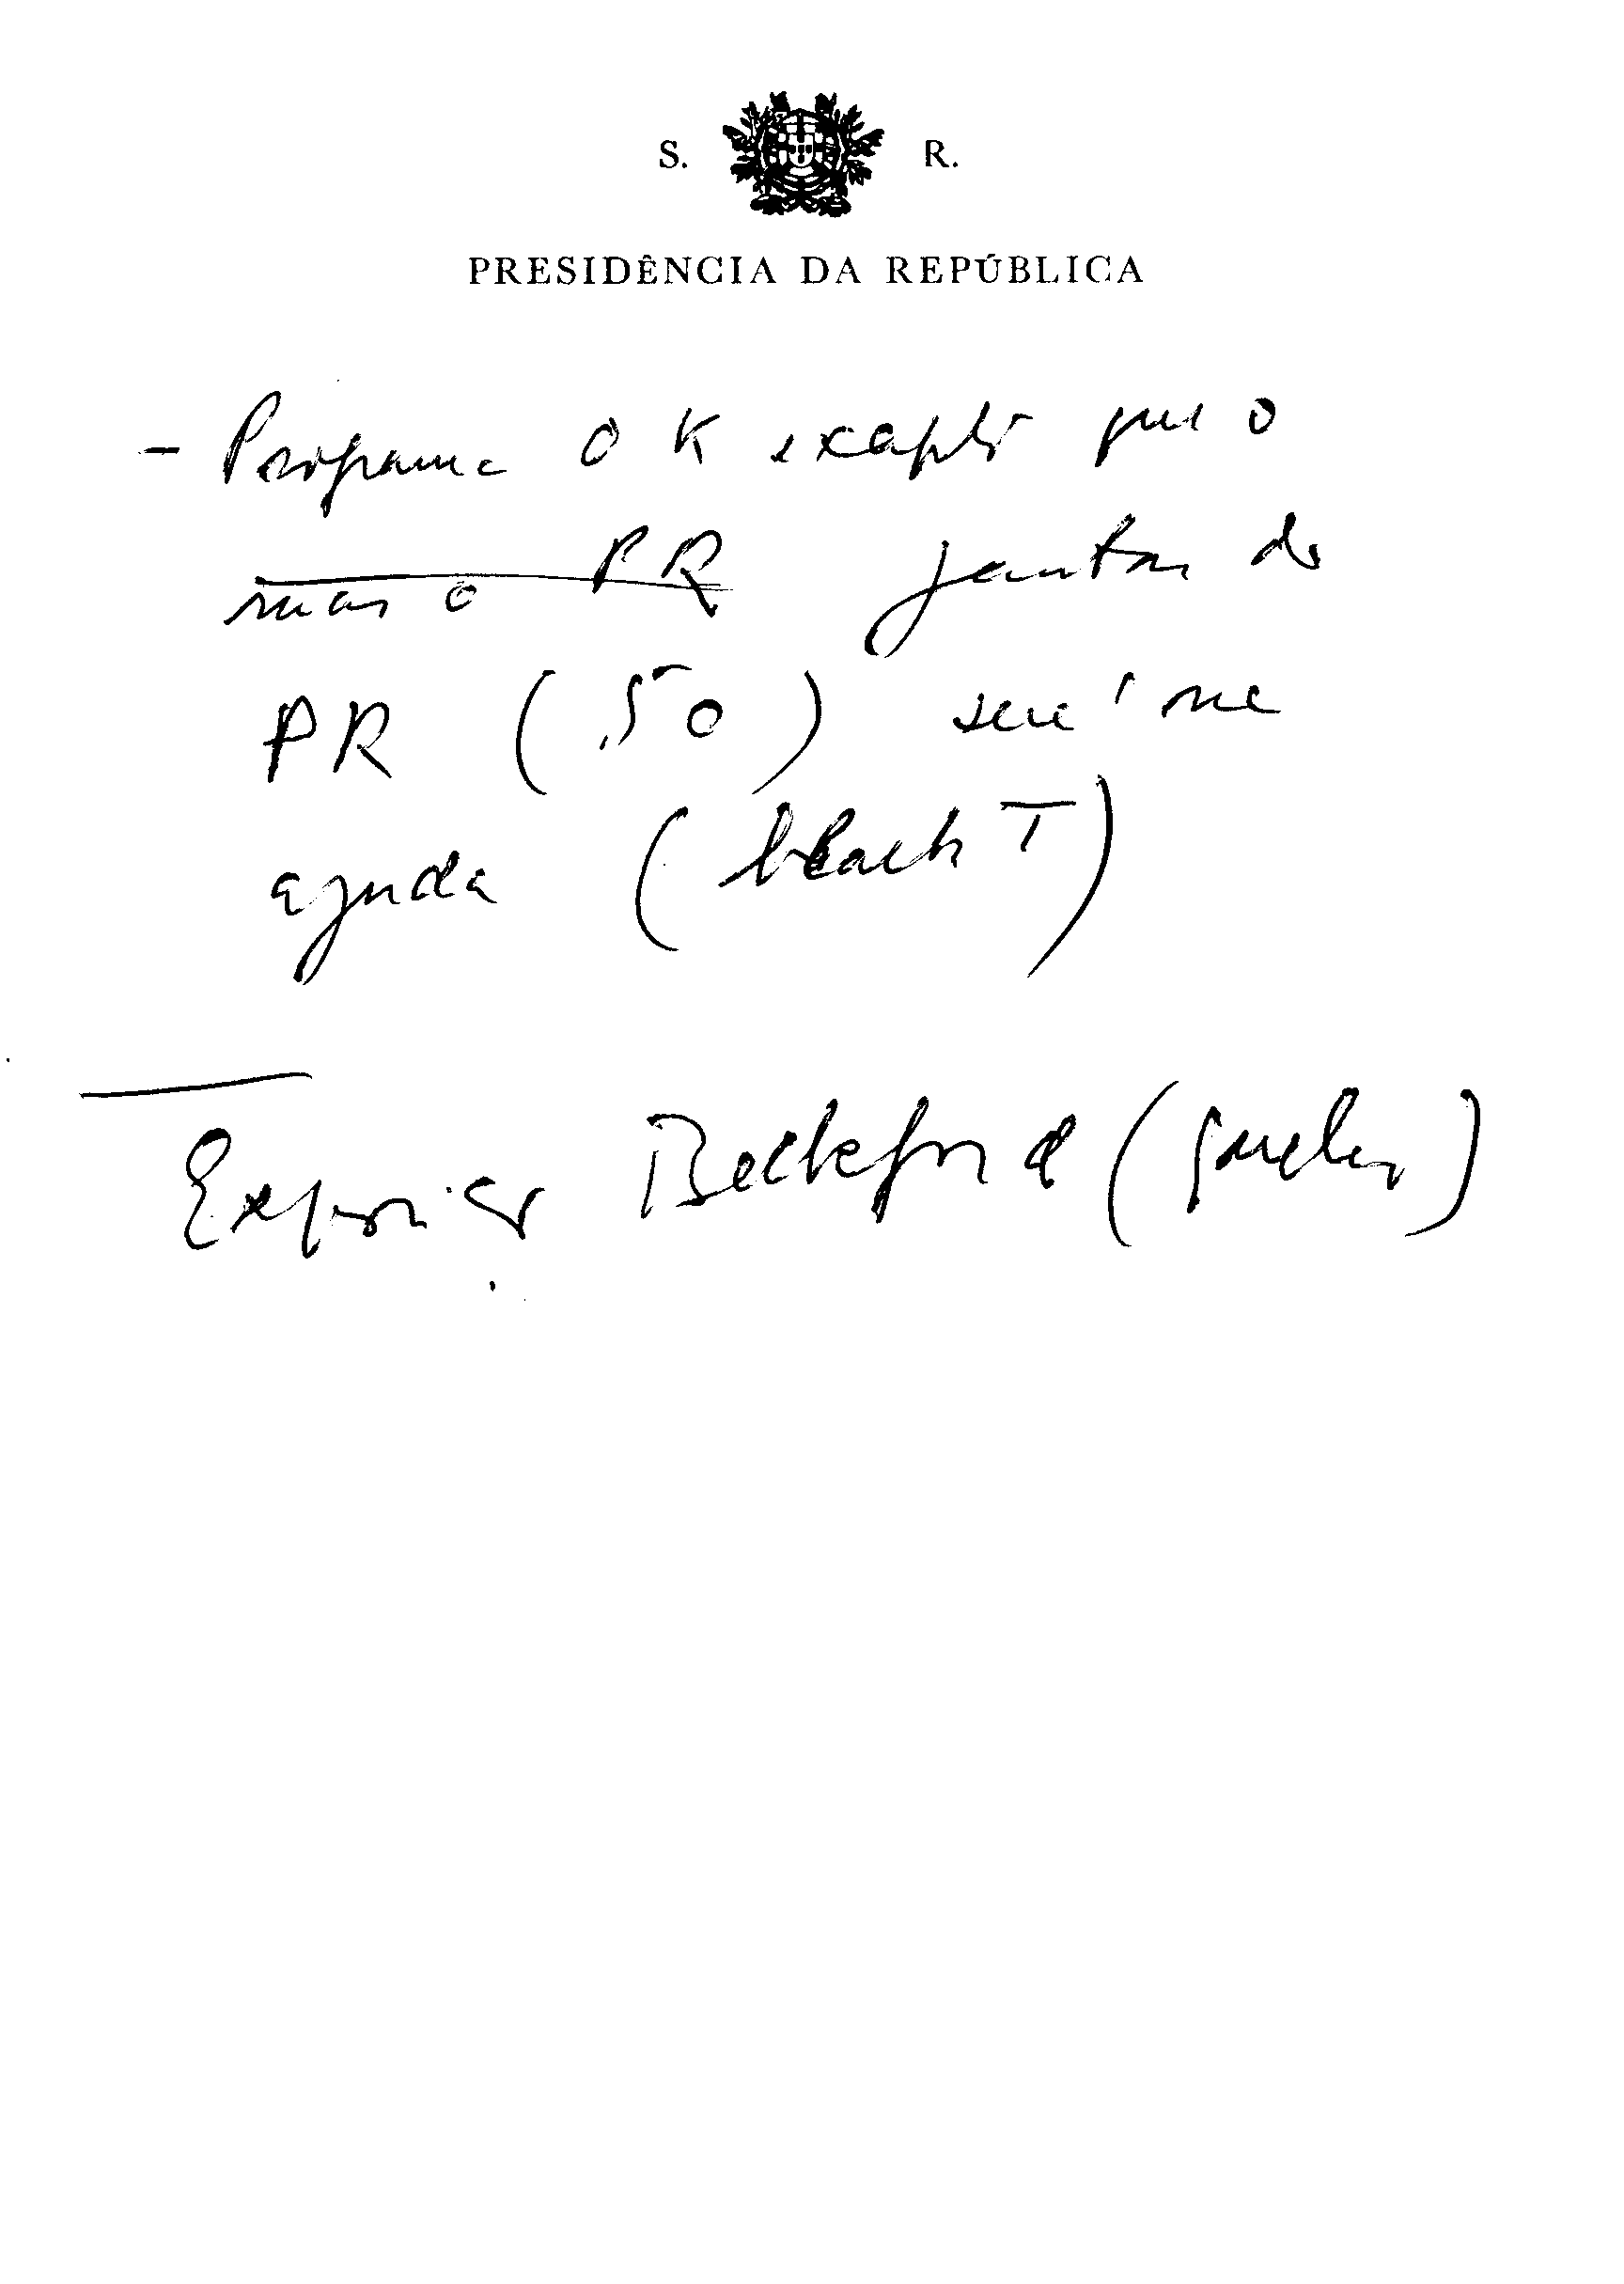 S. R.
PRESIDÊNCIA DA REPÚBLICA
- Programa OK excepto que o
mas o PR jantar do
PR (50) será na
ajuda (black T)
Exposição Beckford (Queluz)